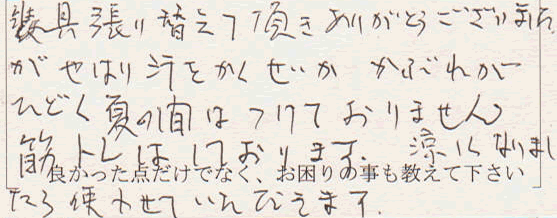 装具張り替えて頂きありがとうございました
がやはり汗をかくせいか かぶれが
ひどく夏の間はつけておりません
筋トレはしております。涼しくなりまし
良かった点だけでなく、お困りの事も教えて下さい
たら使わせていただきます。